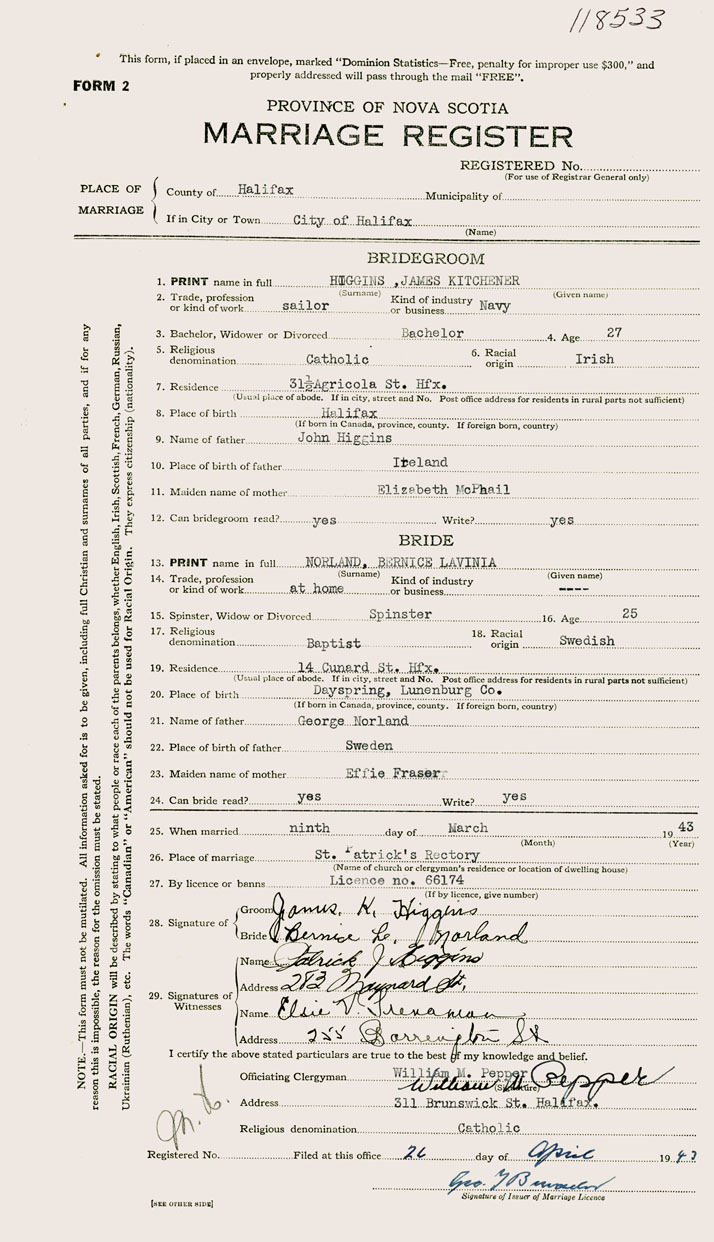 118533
This form, if placed in an envelope, marked "Dominion Statistics—Free, penalty for improper use $300," and
properly addressed will pass through the mail "FREE".
FORM 2
PROVINCE OF NOVA SCOTIA
MARRIAGE REGISTER
REGISTERED No.
(For use of Registrar General only)
PLACE OF MARRIAGE
County of Halifax Municipality of
If in City or Town City of Halifax
(Name)
BRIDEGROOM
1. PRINT name in full HIGGINS ,JAMES KITCHENER
(Surname) (Given name)
2. Trade, profession or kind of work sailor Kind of industry or business Navy
3. Bachelor, Widower or Divorced Bachelor 4. Age 27
5. Religious denomination Catholic 6. Racial origin Irish
7. Residence 31½Agricola St. Hfx.
(Usual place of abode. If in city, street and No. Post office address for residents in rural parts not sufficient)
8. Place of birth Halifax
(If born in Canada, province, county. If foreign born, country)
9. Name of father John Higgins
10. Place of birth of father Ireland
11. Maiden name of mother Elizabeth McPhail
12. Can bridegroom read? yes Write? yes
BRIDE
13. PRINT name in full NORLAND, BERNICE LAVINIA
(Surname) (Given name)
14. Trade, profession or kind of work at home Kind of industry or business ----
15. Spinster, Widow or Divorced Spinster 16. Age 25
17. Religious denomination Baptist 18. Racial origin Swedish
19. Residence 14 Cunard St. Hfx.
(Usual place of abode. If in city, street and No. Post office address for residents in rural parts not sufficient)
20. Place of birth Dayspring, Lunenburg Co.
(If born in Canada, province, county. If foreign born, country)
21. Name of father George Norland
22. Place of birth of father Sweden
23. Maiden name of mother Effie Fraser
24. Can bride read? yes Write? yes
25. When married ninth day of March 1943
(Month) (Year)
26. Place of marriage St. Patrick's Rectory
(Name of church or clergyman's residence or location of dwelling house)
27. By licence or banns Licence no. 66174
(If by licence, give number)
28. Signature of
Groom James. K. Higgins
Bride Bernice L. Norland
29. Signatures of Witnesses
Name Patrick J Higgins
Address 283 Maynard St,
Name Elsie V. Trenaman
Address 255 Barrington St
I certify the above stated particulars are true to the best of my knowledge and belief.
Officiating Clergyman William M. Pepper
William M Pepper
(Signature)
Address 311 Brunswick St. Halifax.
Religious denomination Catholic
Registered No. Filed at this office 26 day of April 1943
Geo. 
Signature of Issuer of Marriage Licence
[SEE OTHER SIDE]
NOTE.—This form must not be mutilated. All information asked for is to be given, including full Christian and surnames of all parties, and if for any
reason this is impossible, the reason for the omission must be stated.
RACIAL ORIGIN will be described by stating to what people or race each of the parents belongs, whether English, Irish, Scottish, French, German, Russian,
Ukrainian (Ruthenian), etc. The words "Canadian" or "American" should not be used for Racial Origin. They express citizenship (nationality).